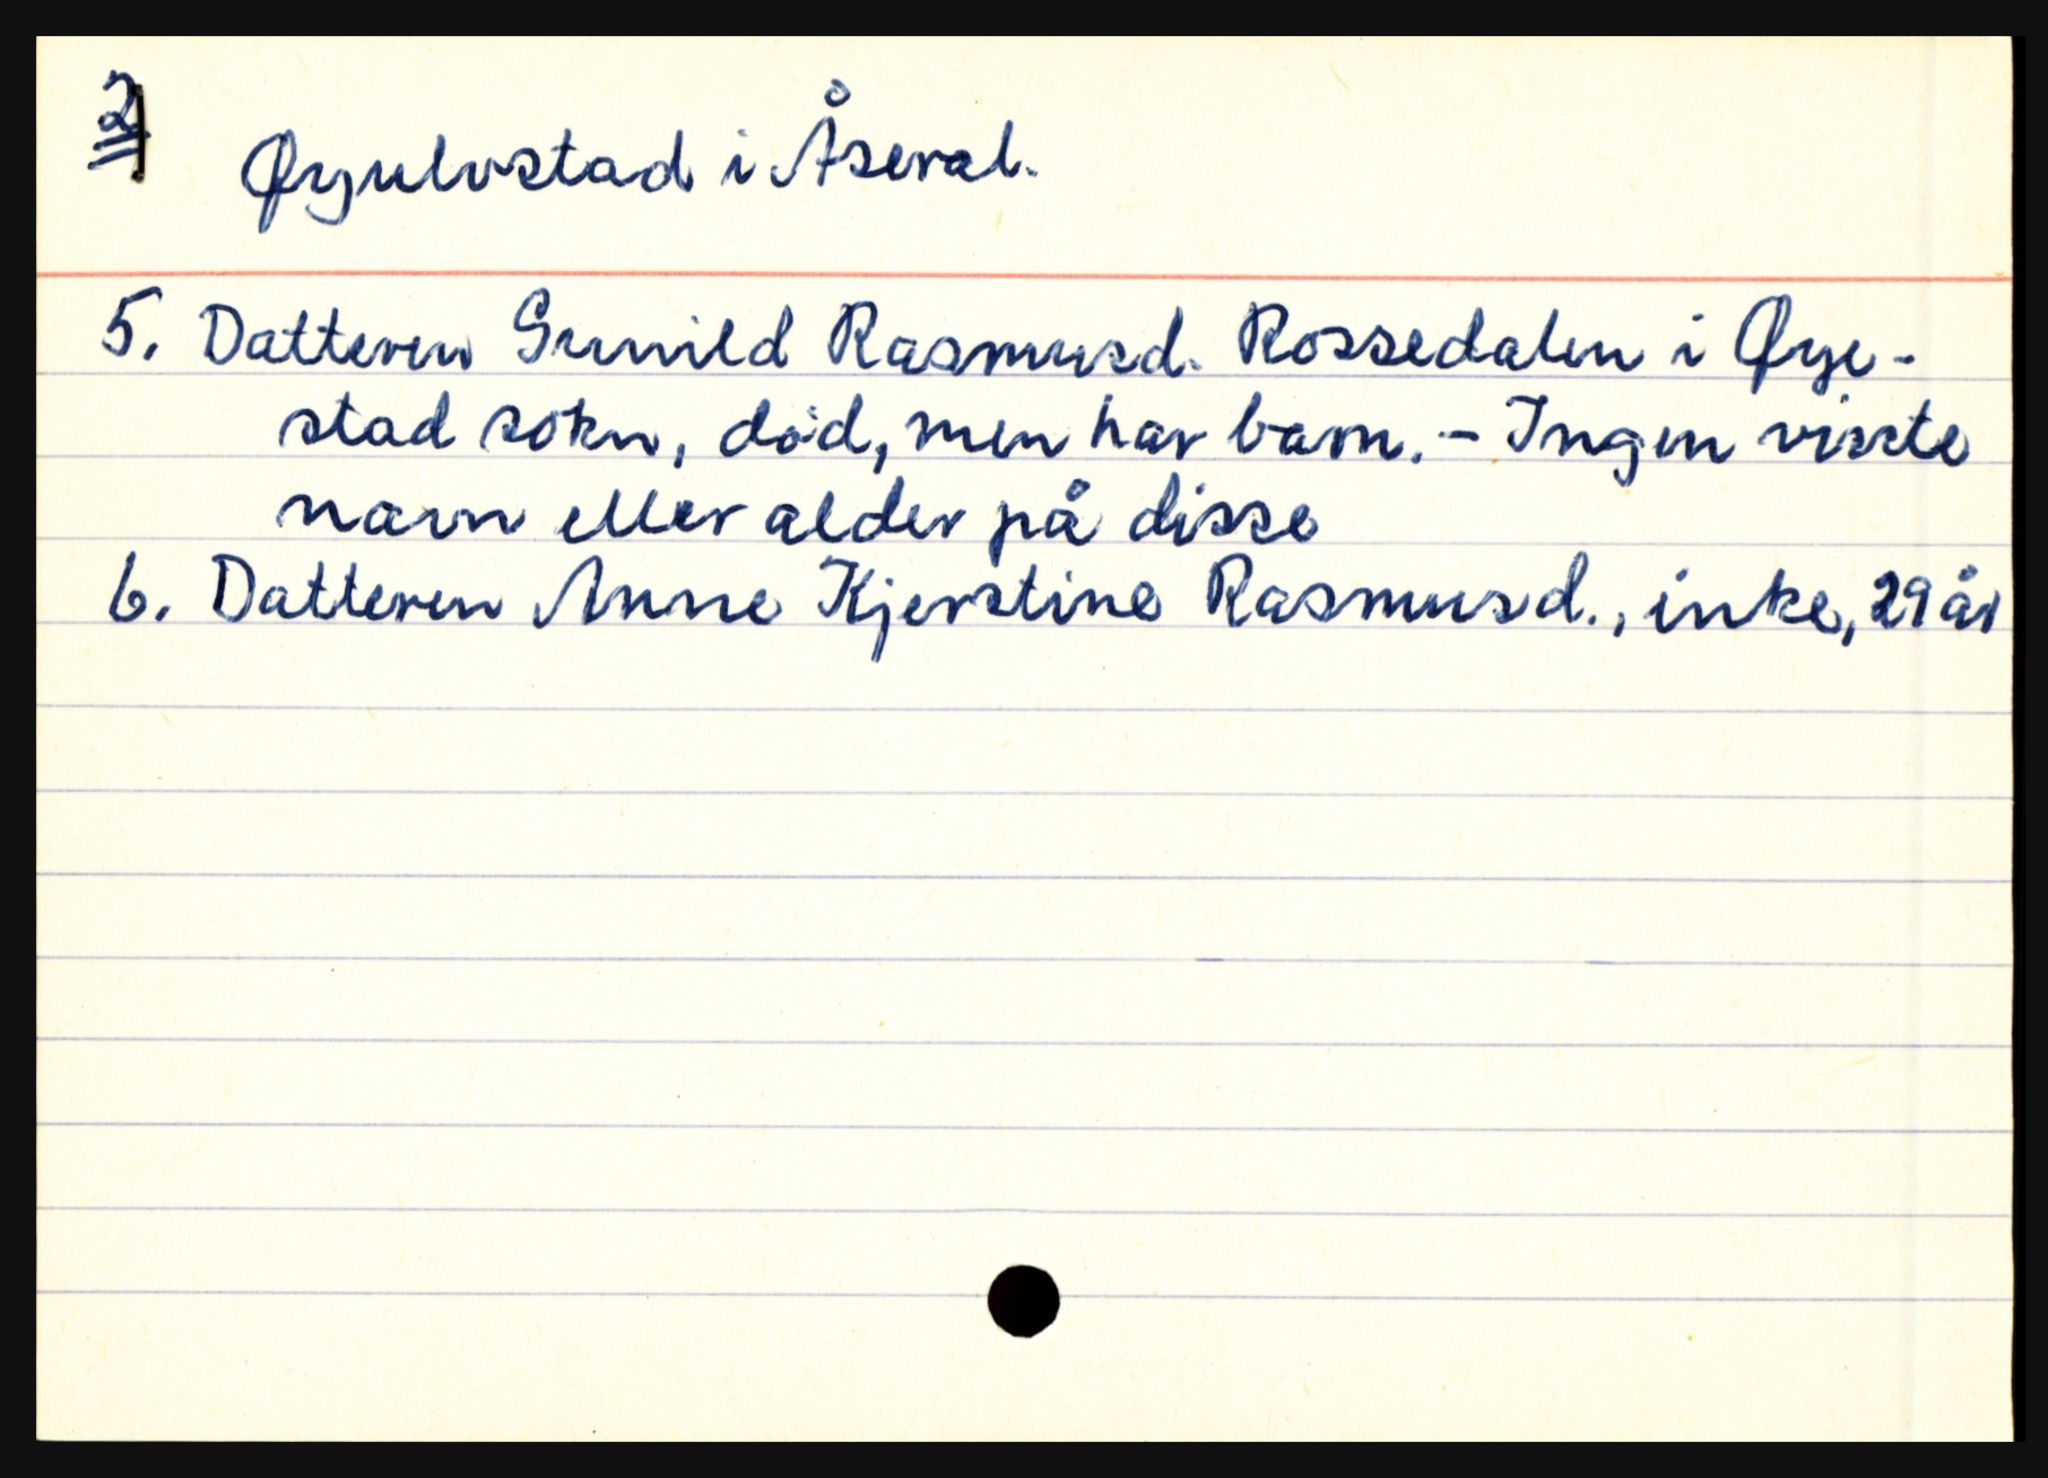 2)
Øyulvstad i Åseral.
5. Datteren Gunild Rasmusd. Rossedalen i Øye-
stad sokn, død, men har barn. - Ingen visste
navn eller alder på disse
6. Datteren Anne Kjerstine Rasmusd., inke, 29 år